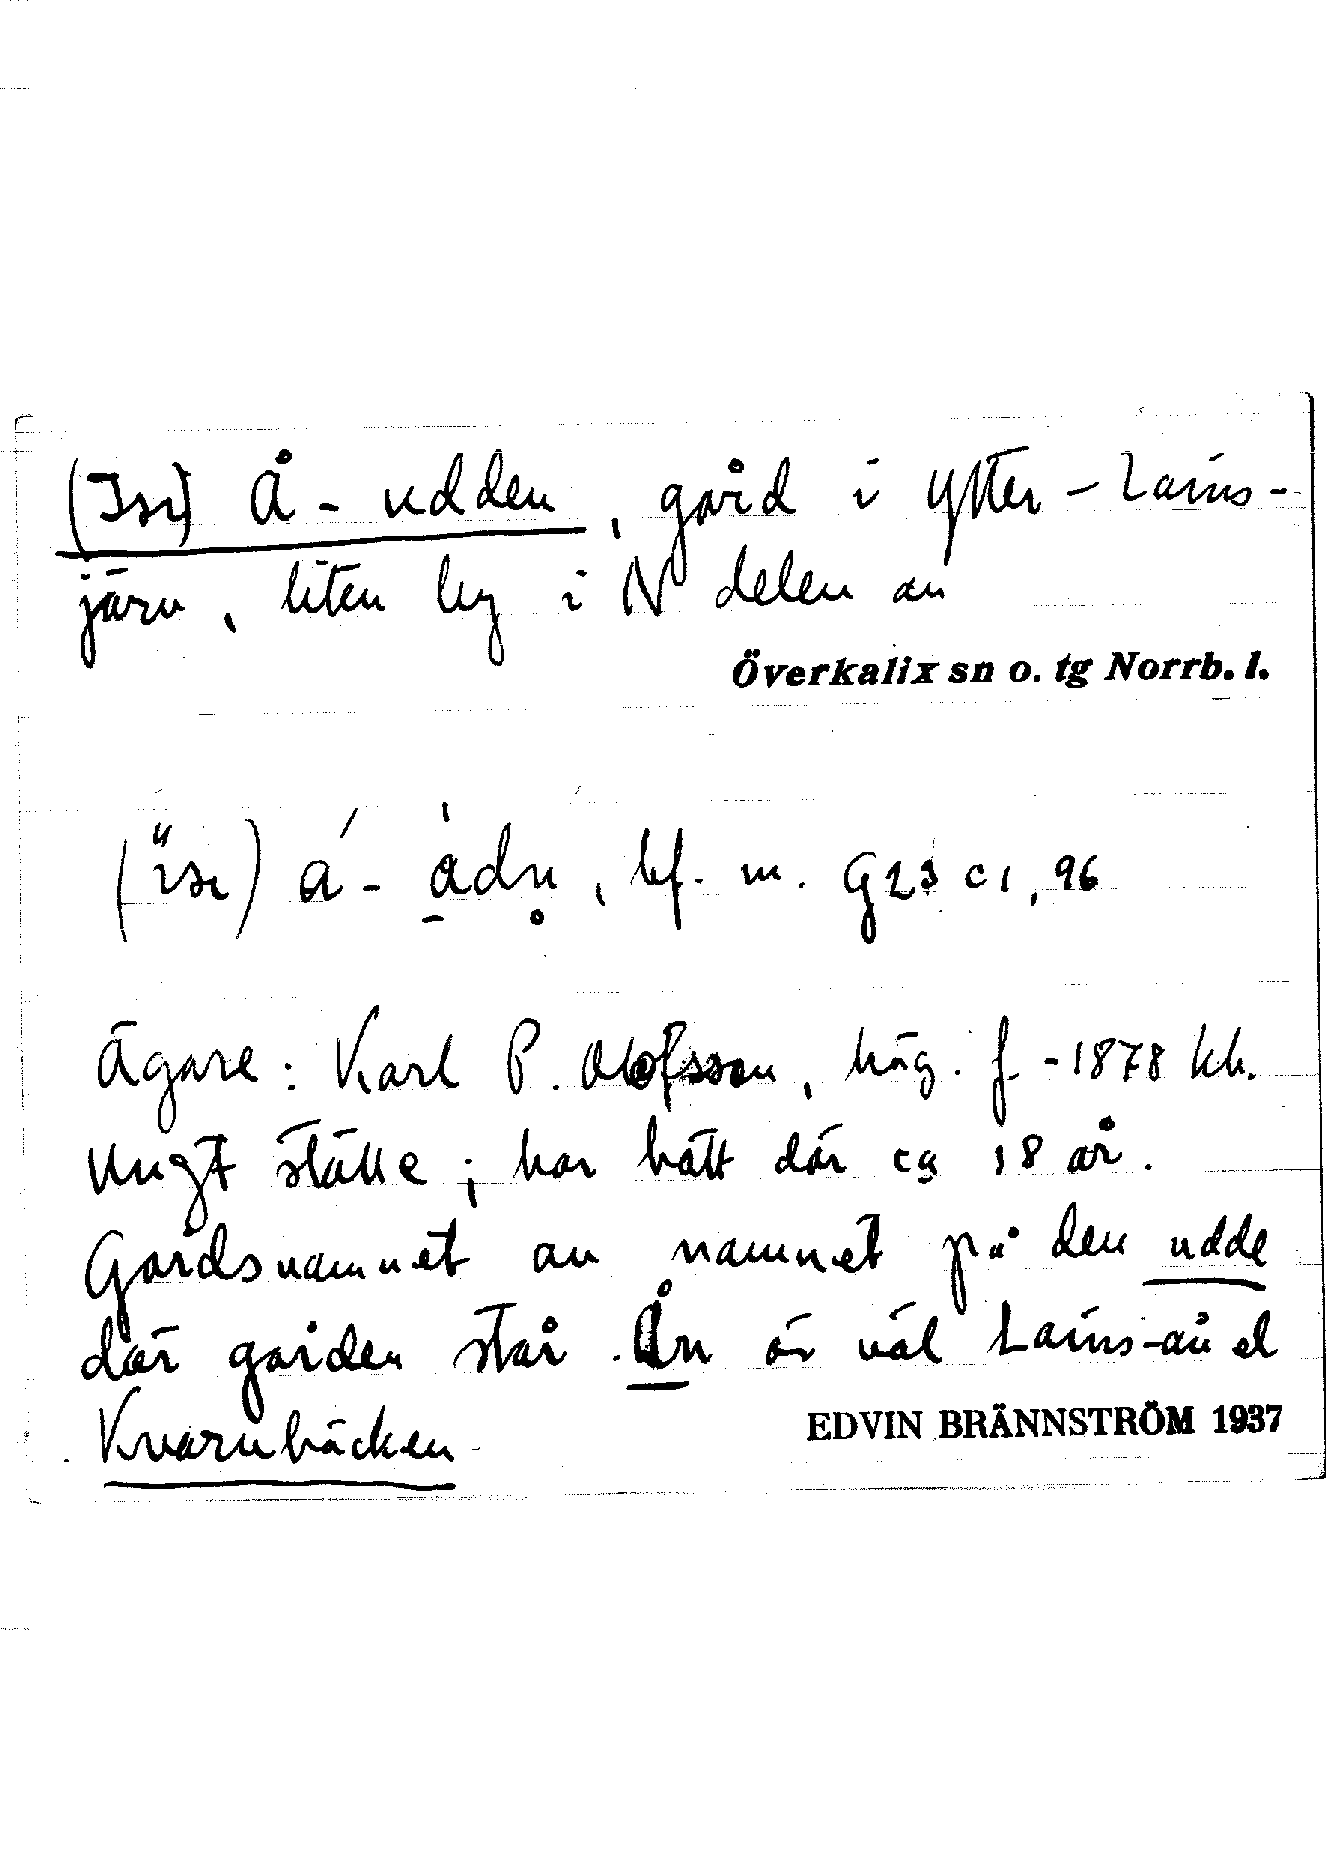 (Isr) Å-udden, gård i Ytter-Lains-
järv, liten by i N delen av
Överkalix sn o. tg Norrb. l.
bf. m. G23 c1, 96
Ägare: Karl P. Olofsson, häg. f. -1878 kh.
Ungt ställe; har bott där ca 18 år.
Gårdsnamnet av namnet på den udde
där gården står. Ån är väl Lains-ån el
Kvarnbäcken
EDVIN BRÄNNSTRÖM 1937